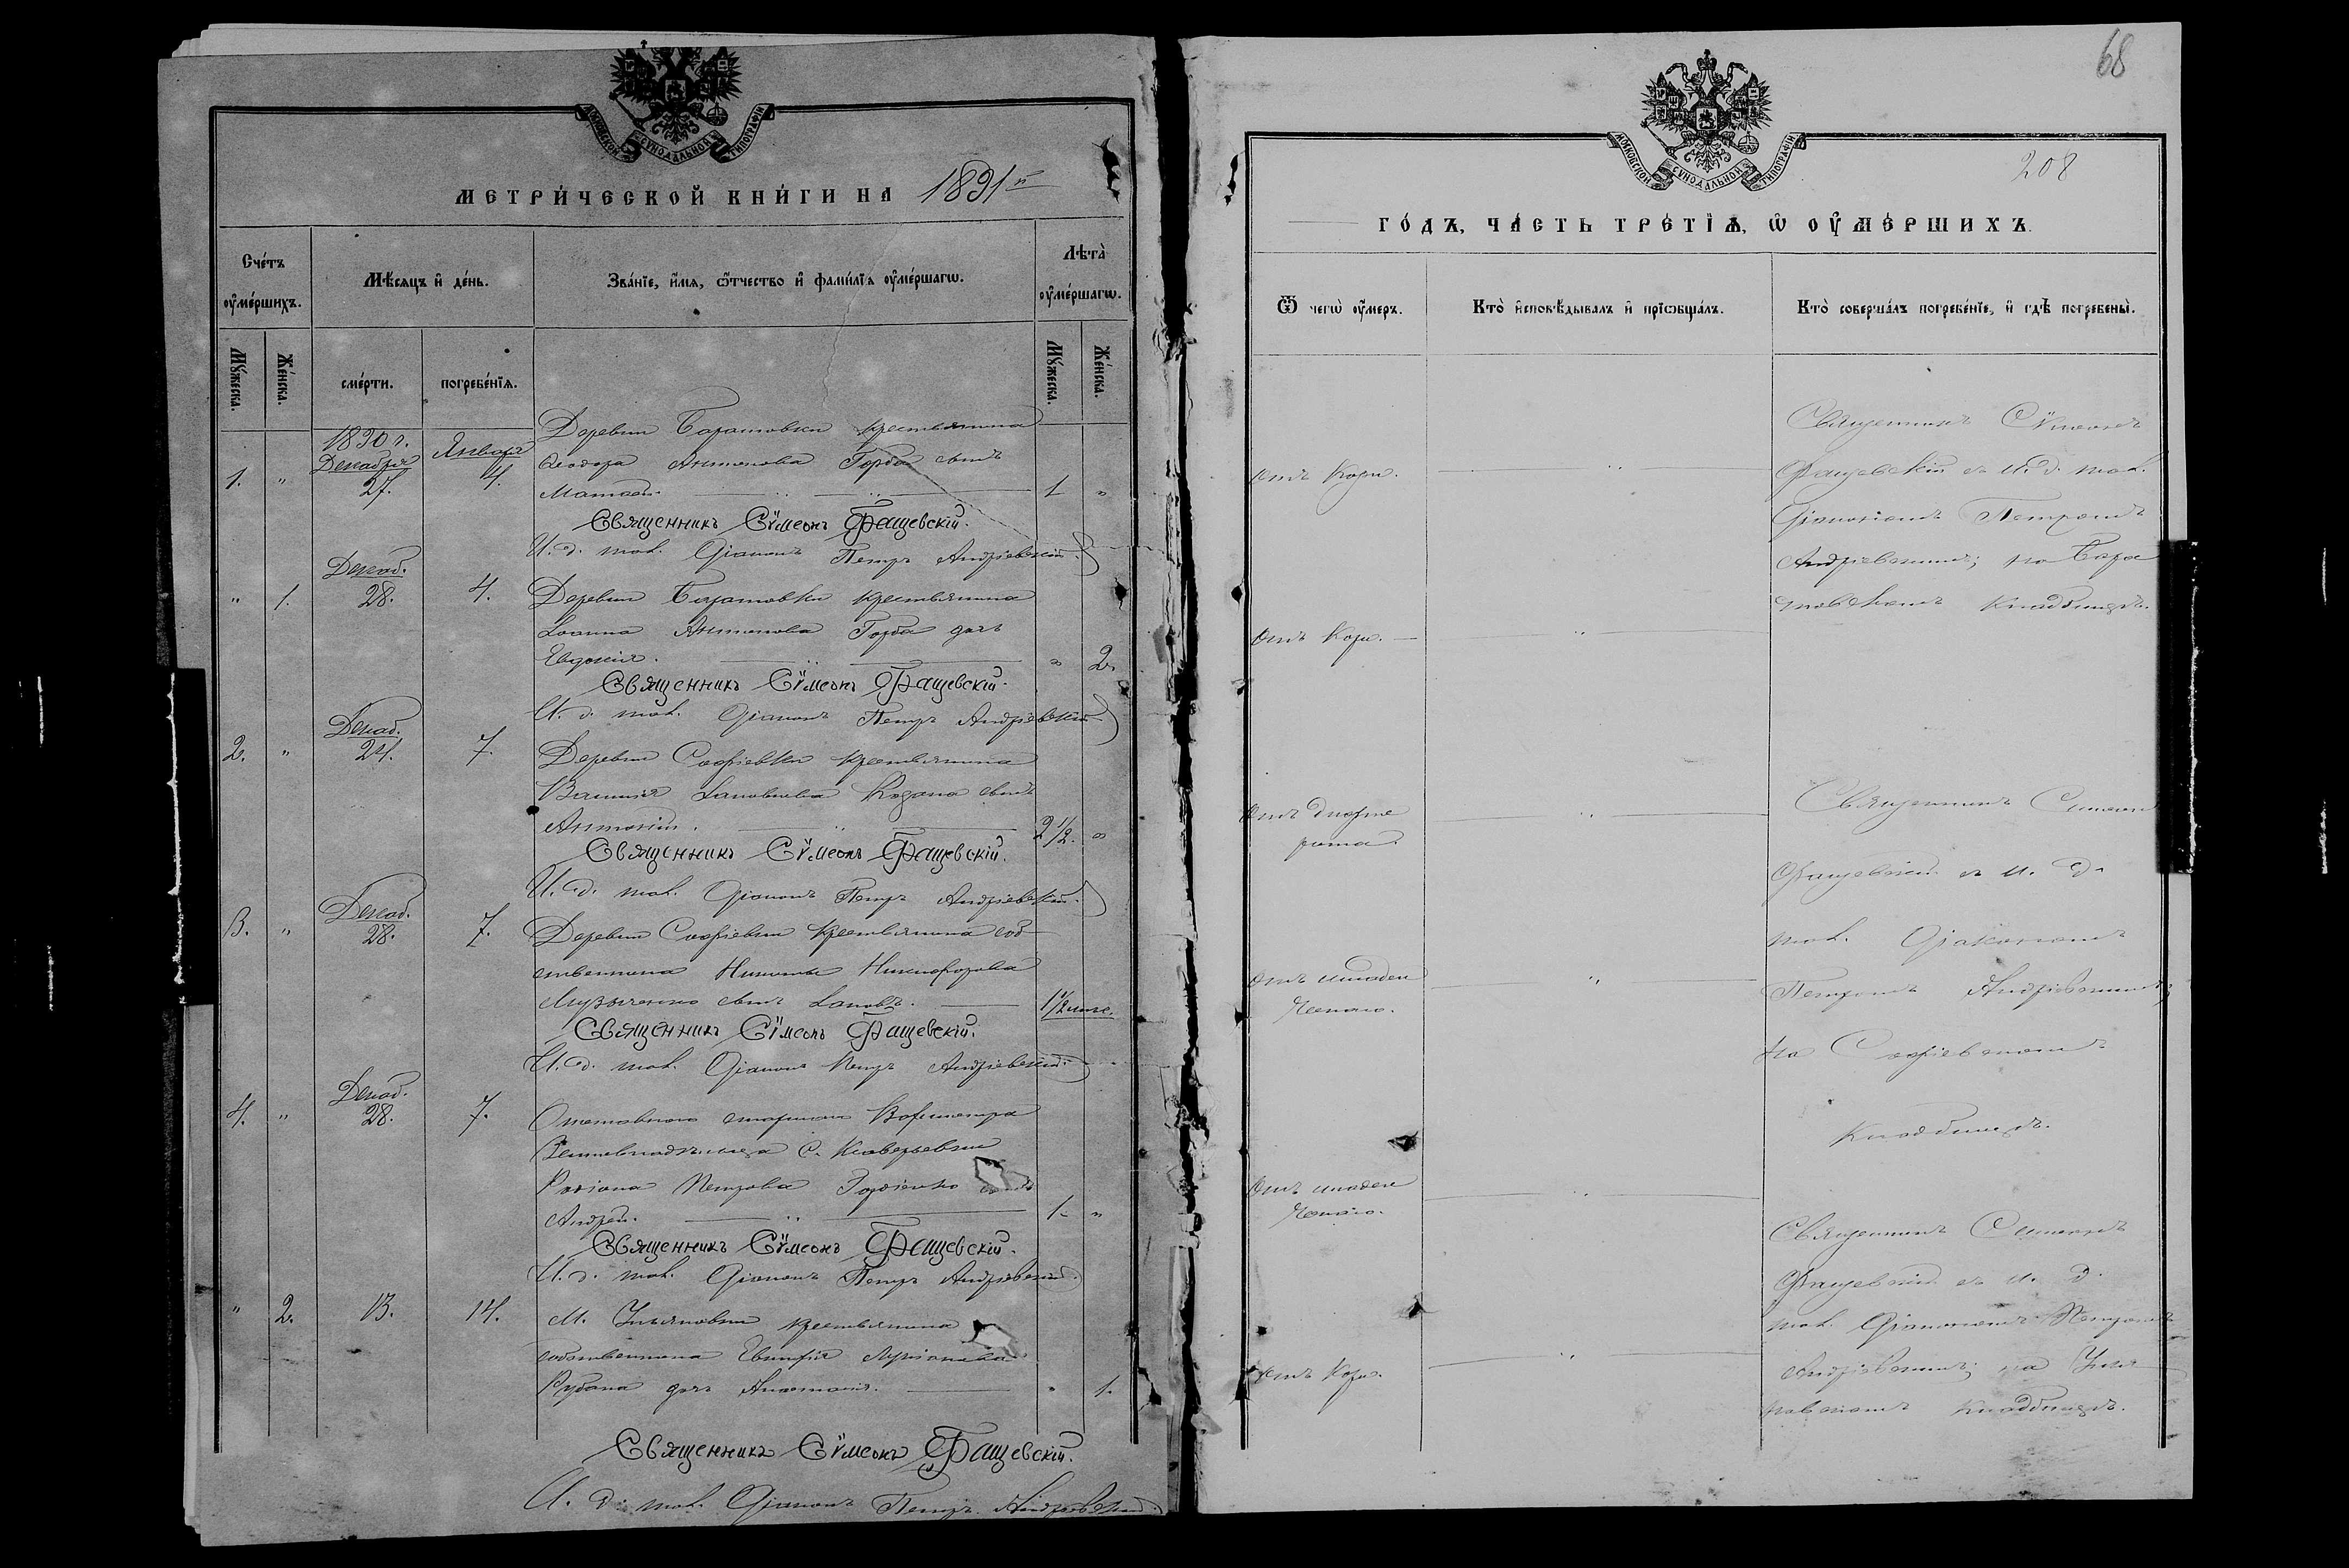 МОСКОВСКОЙ СѴНОДАЛЬНОЙ ТИПОГРАФІИ
МЕТРИ́ЧЕСКОЙ КНИ́ГИ НА 1891 й
Сче́тъ оу҆ме́ршихъ.
Мѣ́сяцъ и҆ де́нь.
Зва́нїе, и҆́мя, ѿтчество и҆ фами́лїѧ оу҆ме́ршагѡ.
Лѣта̀ оу҆ме́ршагѡ.
Мꙋ́жеска.
Же́нска.
сме́рти.
погребе́нїѧ.
Мꙋ́жеска.
Же́нска.
1. " 1890 г. Декабря 27. Января 4.
Деревни Баратовки крестьянина
Ѳеодора Антонова Горба сынъ
Матѳей. 1 "
Священникъ Сѵмеонъ Фащевскій.
И. д. псал. Діаконъ Петръ Андріевскій
" 1. Декаб. 28. 4.
Деревни Баратовки крестьянина
Іоанна Антонова Горба дочь
Евдокія. " 2.
Священникъ Сѵмеонъ Фащевскій.
И. д. псал. Діаконъ Петръ Андріевскій
2. " Декаб. 24. 7.
Деревни Софіевки крестьянина
Василія Іаковлева Козана сынъ
Антоній. 2 1/2. "
Священникъ Сѵмеонъ Фащевскій.
И. д. псал. Діаконъ Петръ Андріевскій.
3. " Декаб. 28. 7.
Деревни Софіевки крестьянина соб
ственника Никиты Никифорова
сынъ Іаковъ. 1 1/2 мѣс.
Священникъ Сѵмеонъ Фащевскій.
И. д. псал. Діаконъ Петръ Андріевскій
4. " Декаб. 28. 7.
Отставного
с. Ксаверьевки
Петрова Гордіенко сынъ
Андрей. 1. "
Священникъ Сѵмеонъ Фащевскій.
И. д. псал. Діаконъ Петръ Андріевскій
" 2. 13. 14.
М. Ульяновки крестьянина
собственника
Рубана дочь Анастасія. " 1.
Священникъ Сѵмеонъ Фащевскій.
И. д. псал. Діаконъ Петръ Андріевскій.
68
МОСКОВСКОЙ СѴНОДАЛЬНОЙ ТИПОГРАФІИ
208
ГО́ДЪ, ЧА́СТЬ ТРЕ́ТЇѦ, Ѡ҆ ОУ҆МЕ́РШИХЪ.
Ѿ чегѡ̀ оу҆́меръ.
Кто̀ и҆сповѣ́дывалъ и҆ прїѡбща́лъ.
Кто̀ соверша́лъ погребе́нїе, и҆ гдѣ̀ погребены̀.
отъ Кори.
Священникъ Сѵмеонъ
Фащевскій съ и. д. псал.
Діакономъ Петромъ
Андріевскимъ; на Бара
товскомъ кладбищѣ.
отъ Кори.
отъ дифте
рита.
Священникъ Симеонъ
Фащевскій съ и. д.
псал. Діакономъ
Петромъ Андріевскимъ;
на Софіевскомъ
кладбищѣ.
отъ младен
ческаго.
отъ младен
ческаго.
Священникъ Симеонъ
Фащевскій съ и. д.
псал. Діакономъ Петромъ
Андріевскимъ; на Улья
новскомъ кладбищѣ.
отъ Кори.